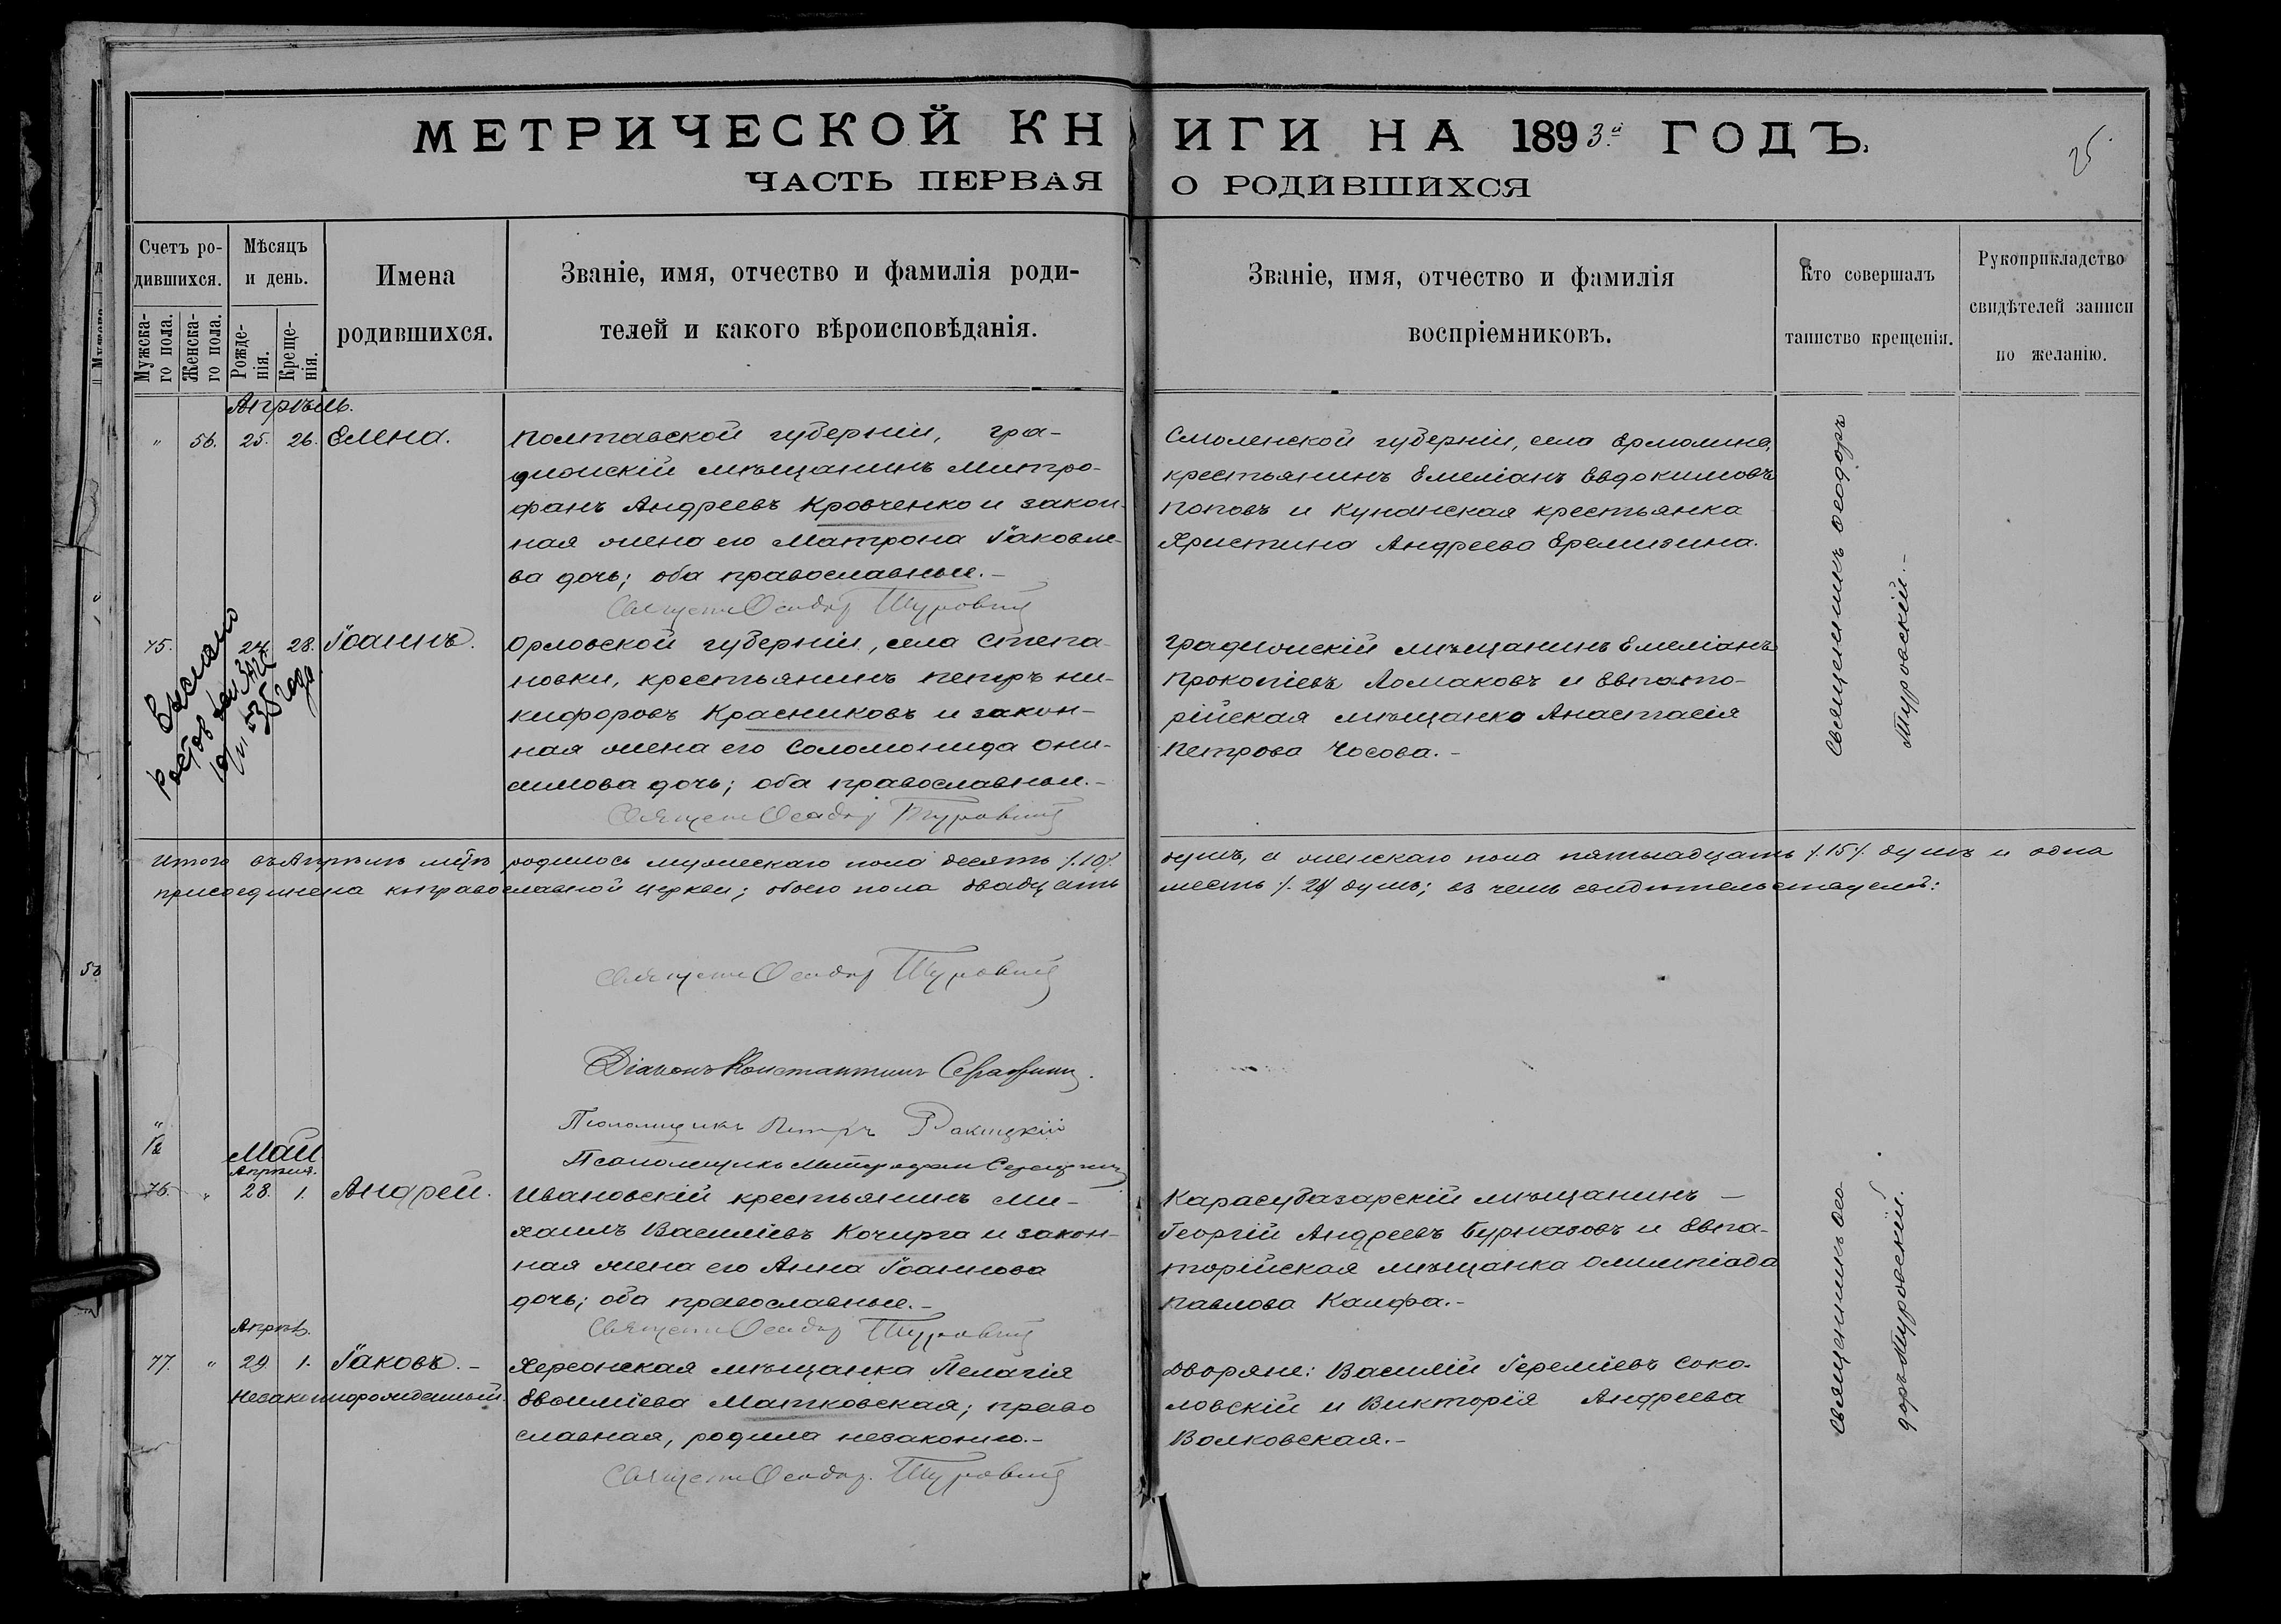 МЕТРИЧЕСКОЙ КНИГИ НА 1893й ГОДЪ.
25.
ЧАСТЬ ПЕРВАЯ О РОДИВШИХСЯ
Счетъ ро-
дившихся.
Мужска-
го пола.
Женска-
го пола.
Мѣсяцъ
и день.
Рожде-
нія.
Креще-
нія.
Имена
родившихся.
Званіе, имя, отчество и фамилія роди-
телей и какого вѣроисповѣданія.
Званіе, имя, отчество и фамилія
воспріемниковъ.
Кто совершалъ
таинство крещенія.
Рукоприкладство
свидѣтелей записи
по желанію.
Апрѣль.
" 56. 25. 26. Елена.
Полтавской губерніи, гра-
дижскій мѣщанинъ Митро-
фанъ Андреевъ Кровченко и закон-
ная жена его Матрона Іаковле-
ва дочь; оба православные.-
Священ Ѳеодор Туровскій
Смоленской губерніи, села Ермолина,
крестьянинъ Емеліанъ Евдокимовъ
Поповъ и Купанская крестьянка
Христина Андреева Еремизина.
Священникъ Ѳеодоръ
Туровскій.-
75. 27. 28. Іоаннъ.
Выслано
Орловской губерніи, села Степа-
новки, крестьянинъ Петръ Ни-
кифоровъ Красниковъ и закон-
ная жена его Соломонида Они-
симова дочь; оба православные.-
Священ Ѳеодор Туровскій
Градижскій мѣщанинъ Емеліанъ
Прокопіевъ Ломаковъ и Евпато-
рійская мѣщанка Анастасія
Петрова Чосова.-
Итого въ Апрѣлѣ мцѣ родилось мужескаго пола десять /.10/. душъ, а женскаго пола пятьнадцать /.15/. душъ и одна
присоединена къ православной церкви; обоего пола двадцать шесть /. 26/ душъ; въ чемъ свидѣтельствуемъ:
Священ Ѳеодор Туровскій
Діаконъ Константинъ Серафим
Псаломщикъ Петръ Ракицкій
Псаломщикъ Митрофан
Май
Апрѣля.
76. " 28. 1. Андрей.
Ивановскій крестьянинъ Ми-
хаилъ Василіевъ Кочирга и закон-
ная жена его Анна Іоаннова
дочь; оба православные.-
Священ Ѳеодор Туровскій
Карасубазарскій мѣщанинъ -
Георгій Андреевъ Бурназовъ и Евпа-
торійская мѣщанка Олимпіада
Павлова Каифа.-
Священникъ Ѳео-
доръ Туровскій.
Апрѣл.
77. " 29 1. Іаковъ.-
Незаконнорожденный.
Херсонская мѣщанка Пелагія
Евфиміева Матковская; право
славная, родила незаконно.-
Священ Ѳеодор. Туровскій
Дворяне: Василій Іереміевъ Соко-
ловскій и Викторія Андреева
Волковская.-